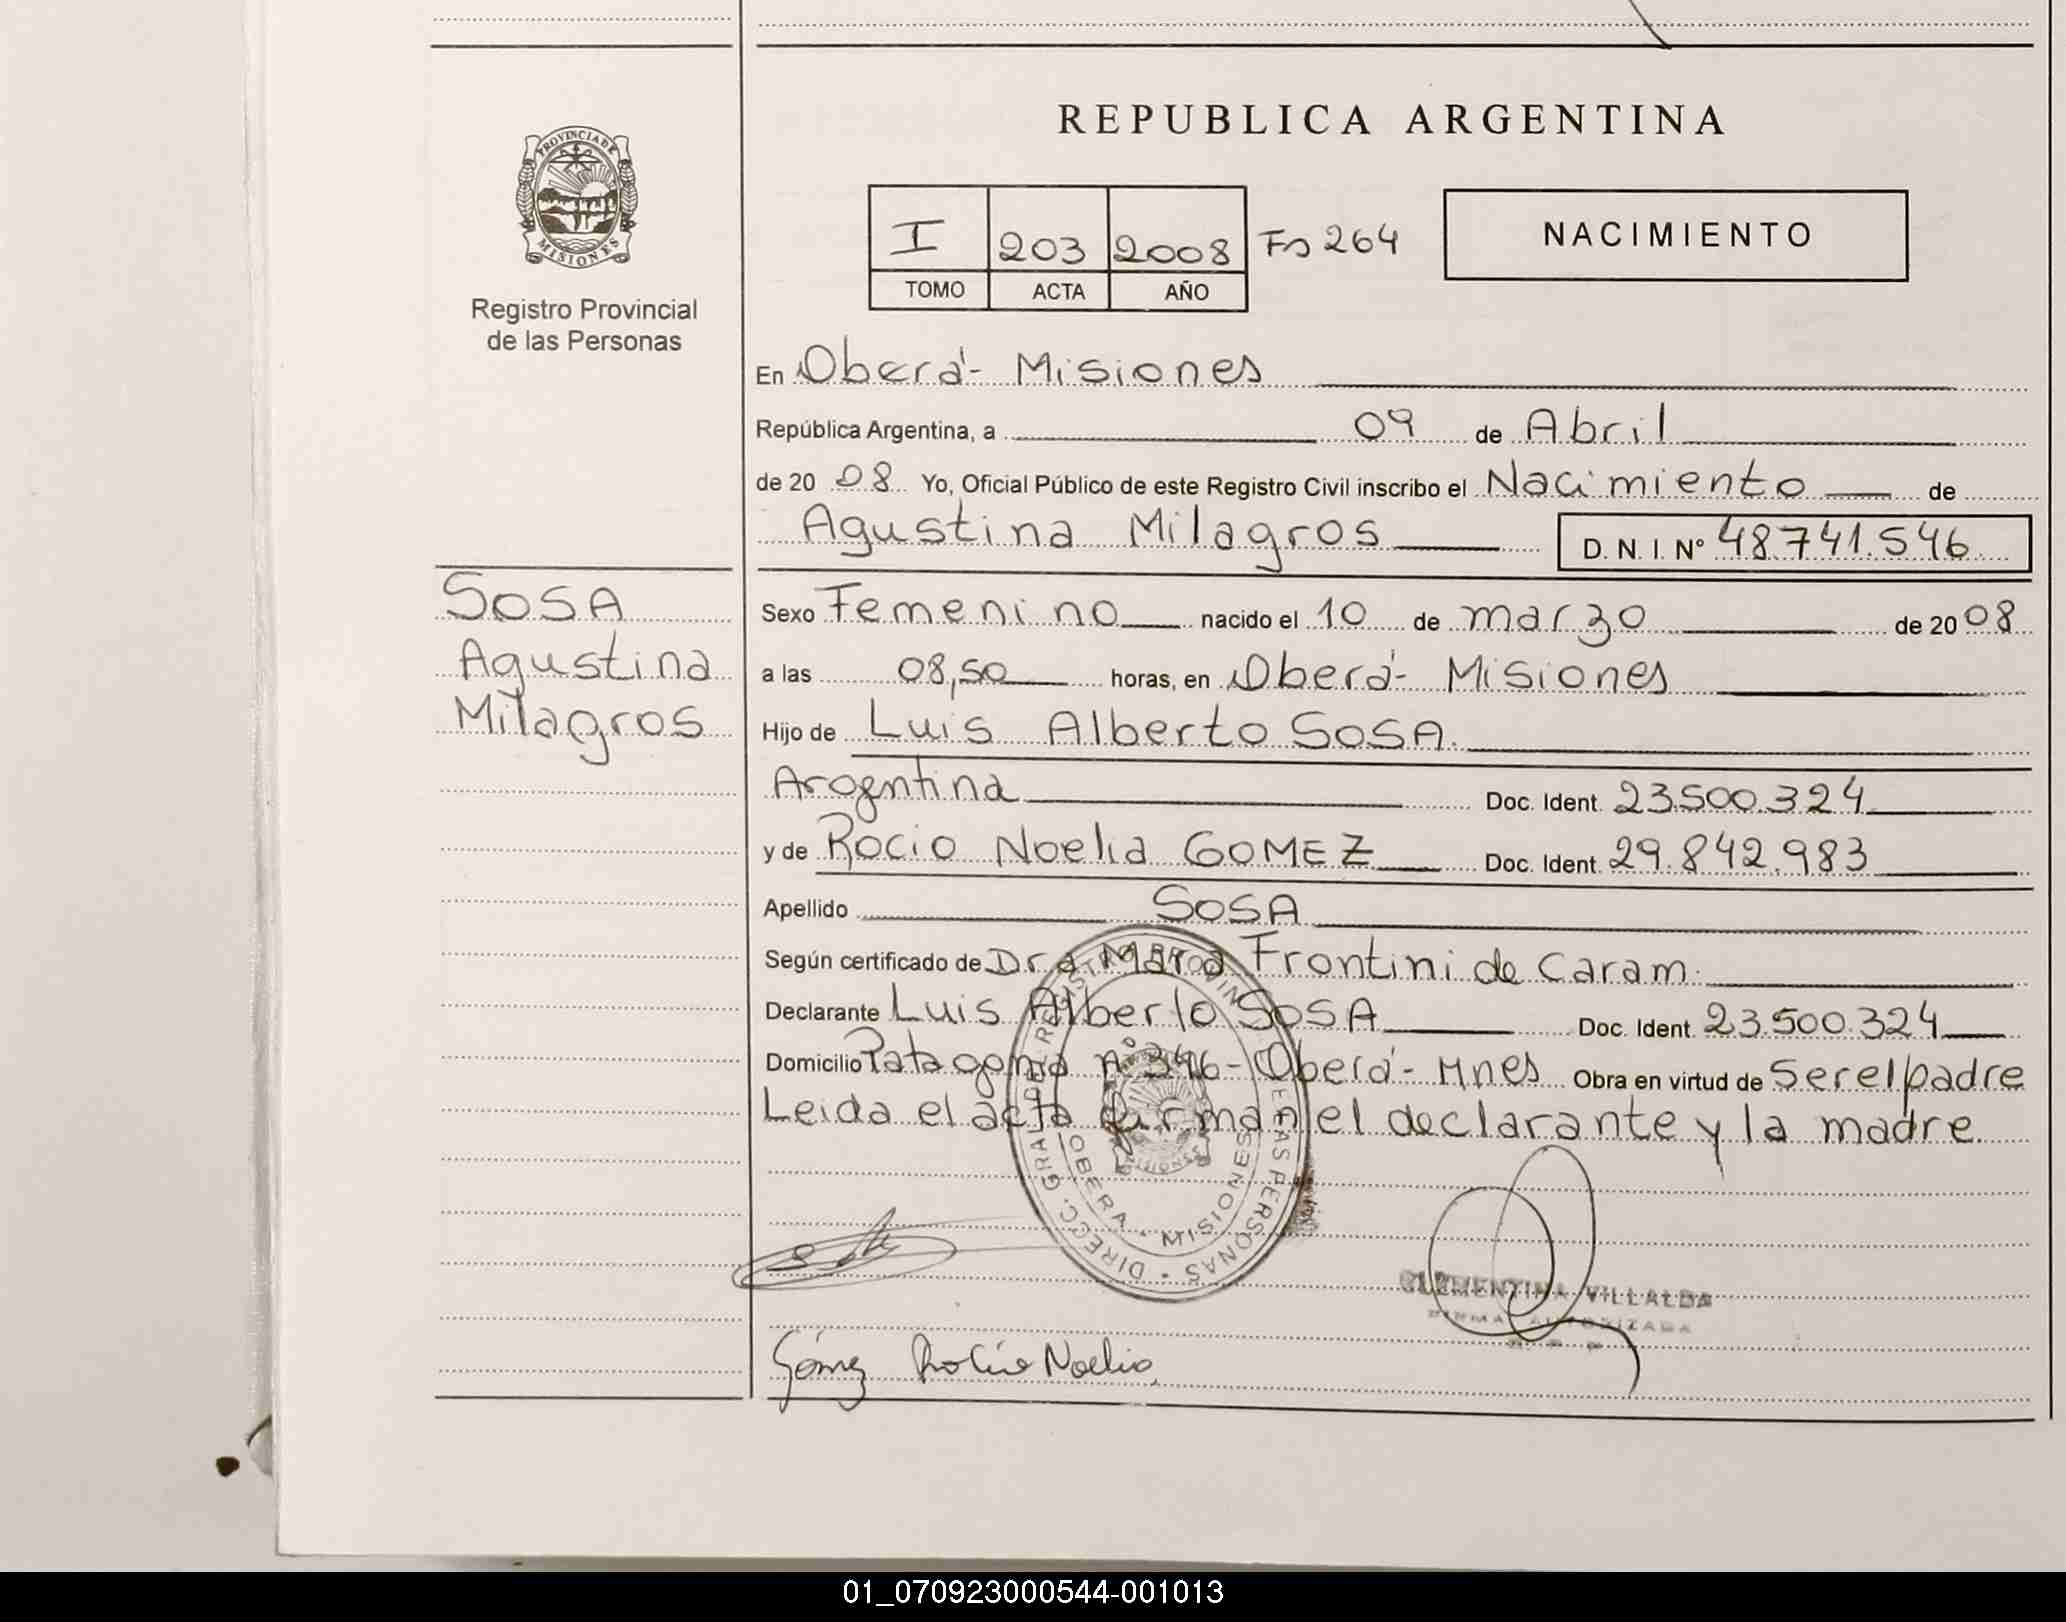 REPUBLICA ARGENTINA
PROVINCIA DE MISIONES
Registro Provincial
de las Personas
I 203 2008 Fs 264
TOMO ACTA AÑO
NACIMIENTO
En Oberá - Misiones
República Argentina, a 09 de Abril
de 20 08 Yo, Oficial Público de este Registro Civil inscribo el Nacimiento de
Agustina Milagros D. N. I. Nº 48.741.546
SOSA
Agustina
Milagros
Sexo Femenino nacido el 10 de marzo de 20 08
a las 08,50 horas, en Oberá - Misiones
Hijo de Luis Alberto SOSA.
Argentina Doc. Ident. 23.500.324
y de Rocio Noelia GOMEZ Doc. Ident. 29.842.983
Apellido SOSA
Según certificado de Dra. Mara Frontini de Caram.
Declarante Luis Alberto SOSA Doc. Ident. 23.500.324
Domicilio Patagonia nº 346 - Oberá - Mnes Obra en virtud de Ser el padre
Leida el acta firman el declarante y la madre
DIRECC. GRAL. DEL REGISTRO PROVIN. DE LAS PERSONAS
OBERA - MISIONES
CLEMENTINA VILLALBA
FIRMA AUTORIZADA
Gómez Rocío Noelia
01_070923000544-001013